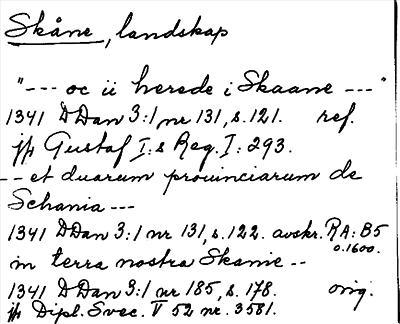 Skåne, landskap
"--- oc ii herede i Skaane ---"
1341 DDan 3:1 nr 131, s. 121. ref.
jfr Gustaf I:s Reg. I: 293.
-- et duarum prouinciarum de
Schania ---
1341 DDan 3:1 nr 131, s. 122. avskr. RA: B5
o. 1600.
in terra nostra Skanie --
1341 DDan 3:1 nr 185, s. 178. orig.
jfr Dipl. Svec. V 52 nr. 3581.